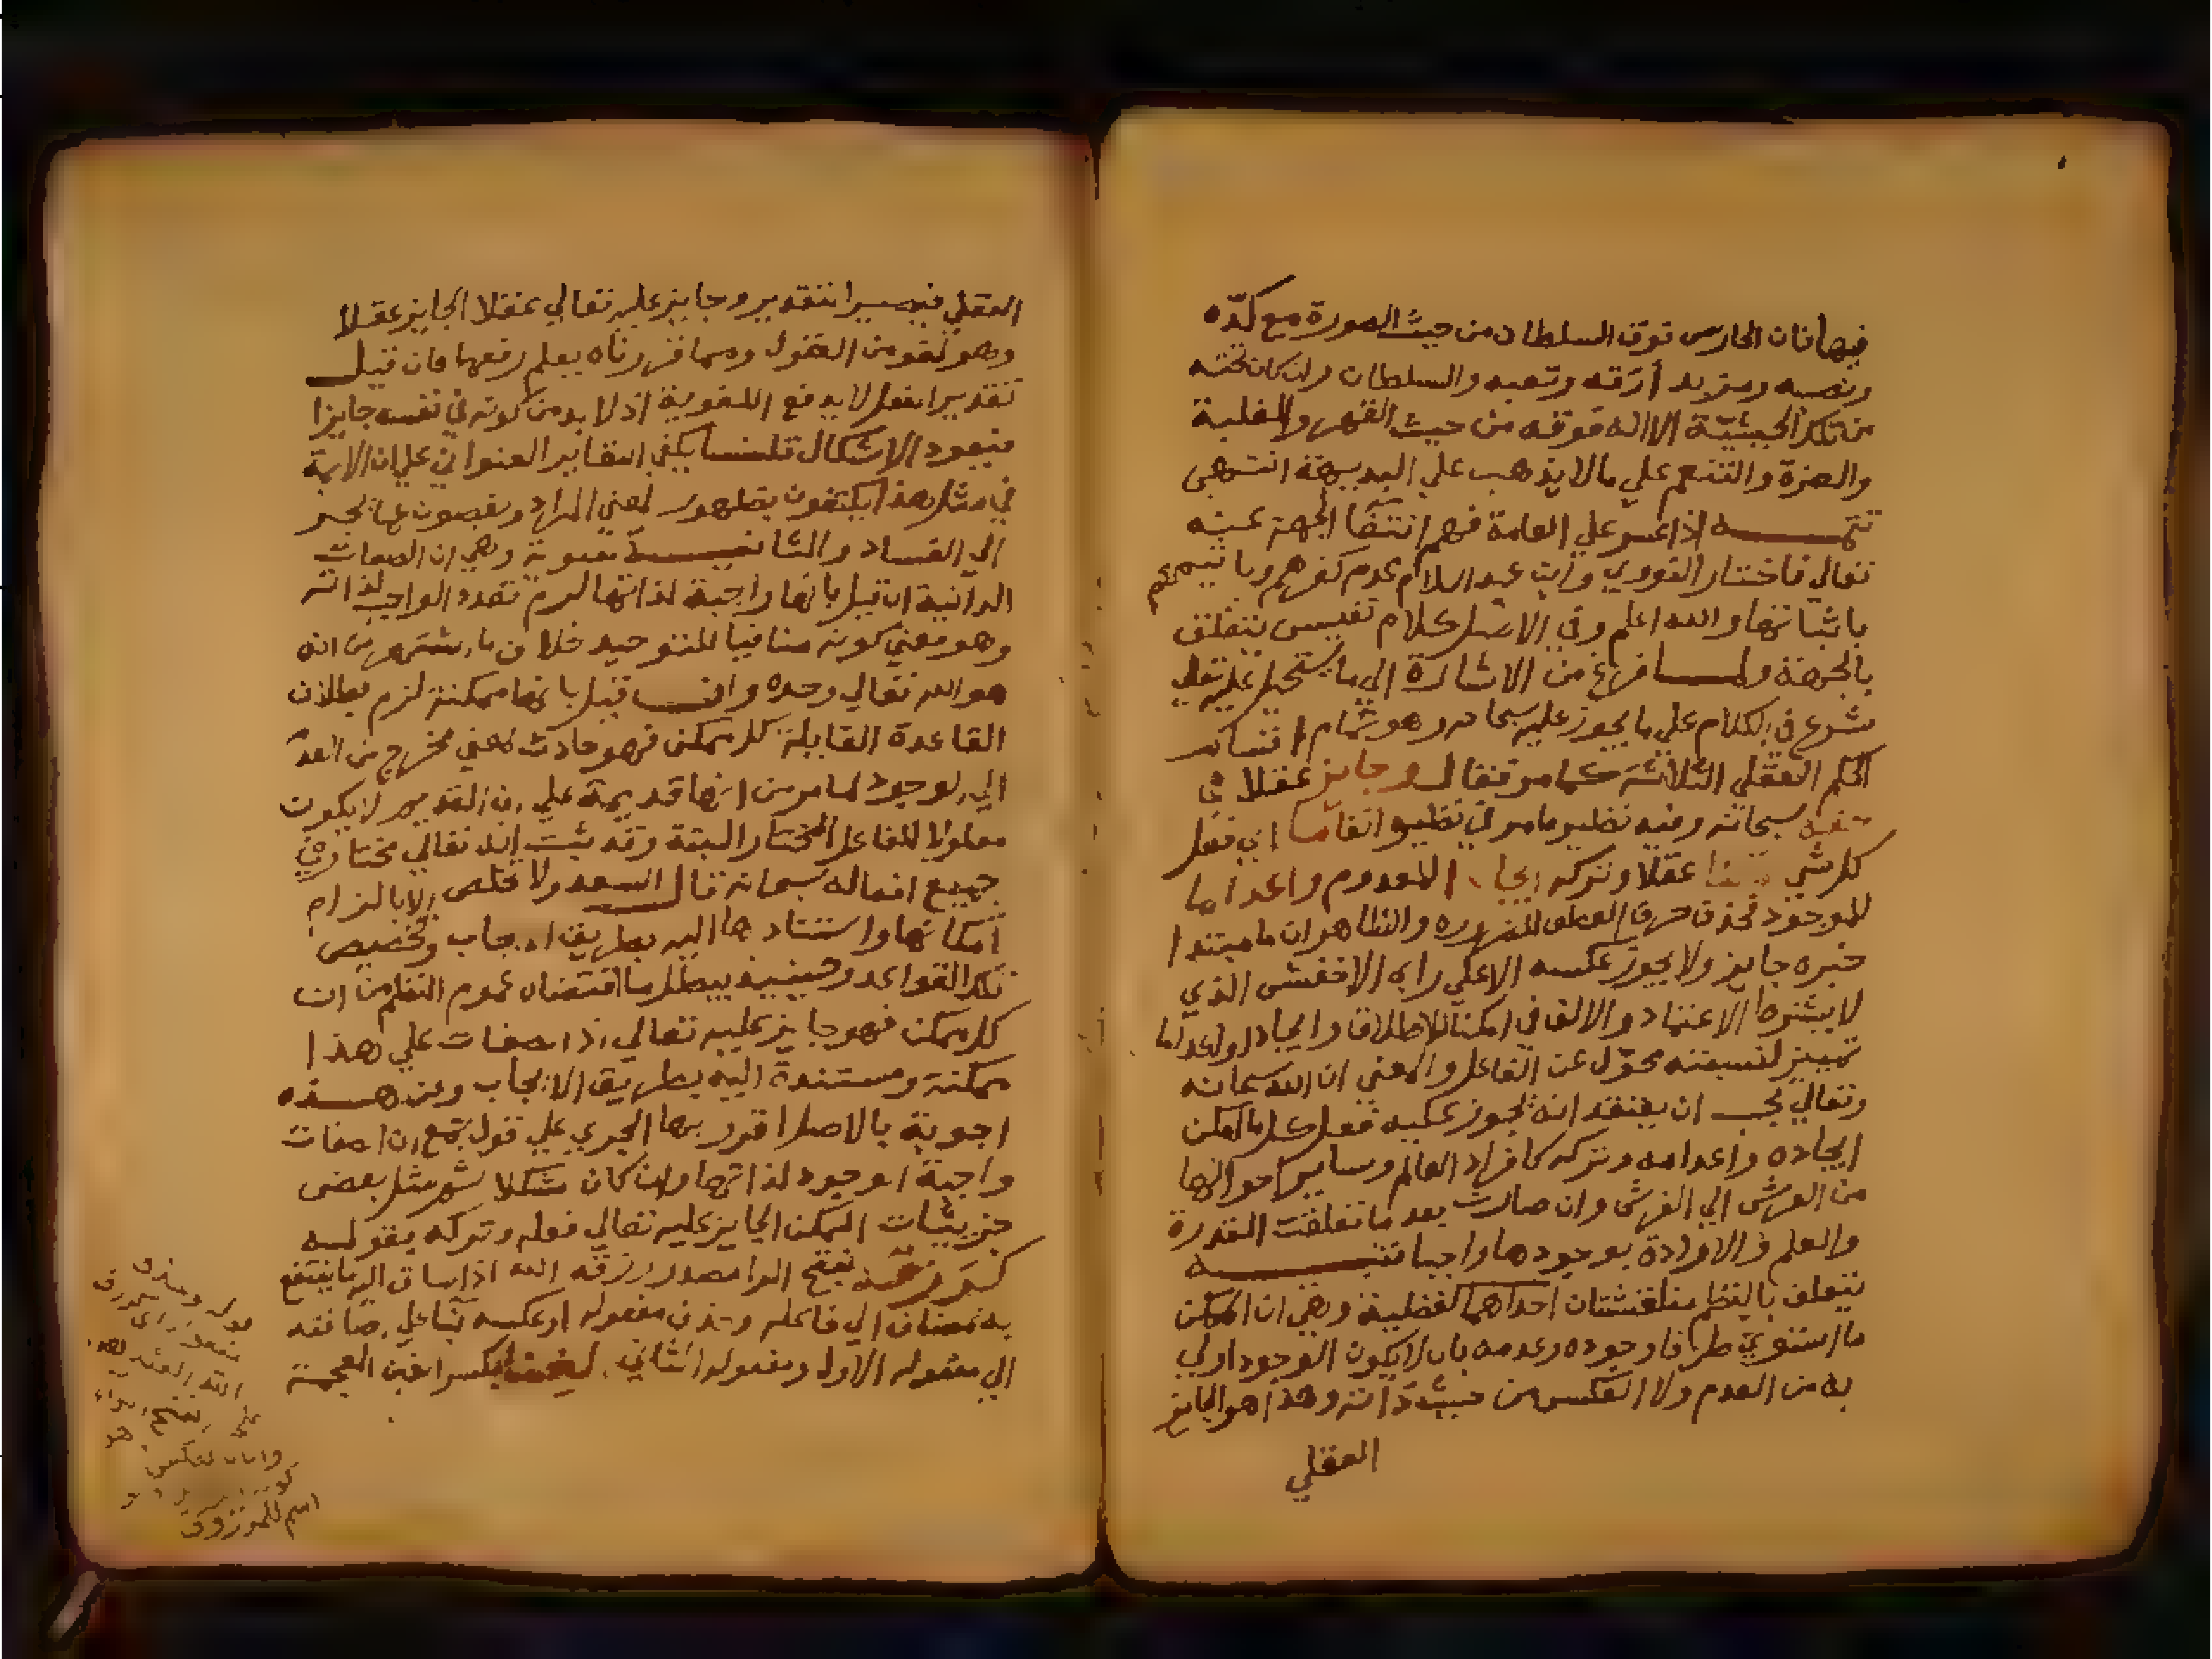 فيها فان الحارس فوق السلطان من حيث الصورة مع كدّه
ونصبه ومزيد أرقه وتعبه والسلطان وان كان تحته
من تلك الحيثيّة الا انه فوقه من حيث القهر والغلبة
والعزة والتنعم علي ما لا يذهب علي البديهة انتهى
تتمـــه اذا عسر علي العامة فهم انتفا الجهة عنه
تعالي فاختار النووي وابن عبد السلام عدم كفرهم وبا تيمم
باثباتها والله اعلم وفي الاصل كلام نفيس يتعلق
بالجهة ولمـا فرغ من الاشارة الي ما يستحيل عليه تعالي
شرع في الكلام علي ما يجوز عليه سبحانه وهو تمام اقسام
الحكم العقلي الثلاثة كما مر فقال وجايز عقلا في
حقه سبحانه وفيه نظير ما مر في نظيره انفا ما اي فعل
كل شي امكنا عقلا وتركه ايجادا للمعدوم واعداما
للموجود فحذف حرف العطف للضرورة والظاهر ان ما مبتدا
خبره جايز ولا يجوز عكسه الا علي راي الاخفش الذي
لا يشترط الاعتماد والالف في امكنا للاطلاق وايجادا واعداما
تمييز لنسبته محوّل عن الفاعل والمعني ان الله سبحانه
وتعالي يجب ان يعتقد انه يجوز عليه فعل كل ما امكن
ايجاده واعدامه وتركه كافراد العالم وساير احوالها
من العرش الي الفرش وان صارت بعد ما تعلقت القدرة
والعلم والارادة بوجودها واجبا تنبيـــه
يتعلق بالنظم مناقشتان احداهما لفظية وهي ان الممكن
ما استوي طرفا وجوده وعدمه بان لا يكون الوجود اولي
به من العدم ولا العكس من حيث ذاته وهذا هو الجايز
العقلي
العقلي فيصير التقدير وجايز عليه تعالي عقلا الجايز عقلا
وهو لغو من القول ومما قررناه يعلم رفعها فان قيل
تقدير الفعل لا يدفع اللغوية اذ لا بد من كونه في نفسه جايزا
فيعود الاشكال قلنـا يكفي التغاير العنواني علي ان الايمة
في مثل هذا يكتفون بظهور المعني المراد ويغصون عما يجر
الي الفساد والثانيـــة معنوية وهي ان الصفات
الذاتية ان قيل بانها واجبة لذاتها لزم تعدد الواجب لذاته
وهو معني كونه منافيا للتوحيد خلاف ما اشتهر من انه
هو الله تعالي وحده وان قيل بانها ممكنة لزم بطلان
القاعدة القايلة كل ممكن فهو حادث بمعني مخرج من العدم
الي الوجود لما مر من انها قديمة علي ان القديم لا يكون
معلولا للفاعل المختار البتة وقد ثبت انه تعالي مختار في
جميع افعاله سبحانه قال السعد ولا مخلص الا بالتزام
امكانها واستنادها اليه بطريق الايجاب وتخصيص
تلك القواعد وحينيذ يبطل ما اقتضاه عموم النظم من ان
كل ممكن فهو جايز عليه تعالي اذ الصفات علي هذا
ممكنة ومستندة اليه بطريق الايجاب وعن هـذه
اجوبة بالاصل اقرب بها الجري علي قول جمع ان الصفات
واجبة الوجود لذاتها وان كان مشكلا ثم مثل بعض
جزييات الممكن الجايز عليه تعالي فعله وتركه بقولـه
كرزقه بفتح الرا مصدر رزقه الله اذا ساق اليه ما ينتفع
به مضاف الي فاعله وحذف مفعوله او عكسه بناعلي اضافته
الي مفعوله الاول ومفعوله الثاني الغنا بكسر الغين المعجمة
اسم للمرزوق